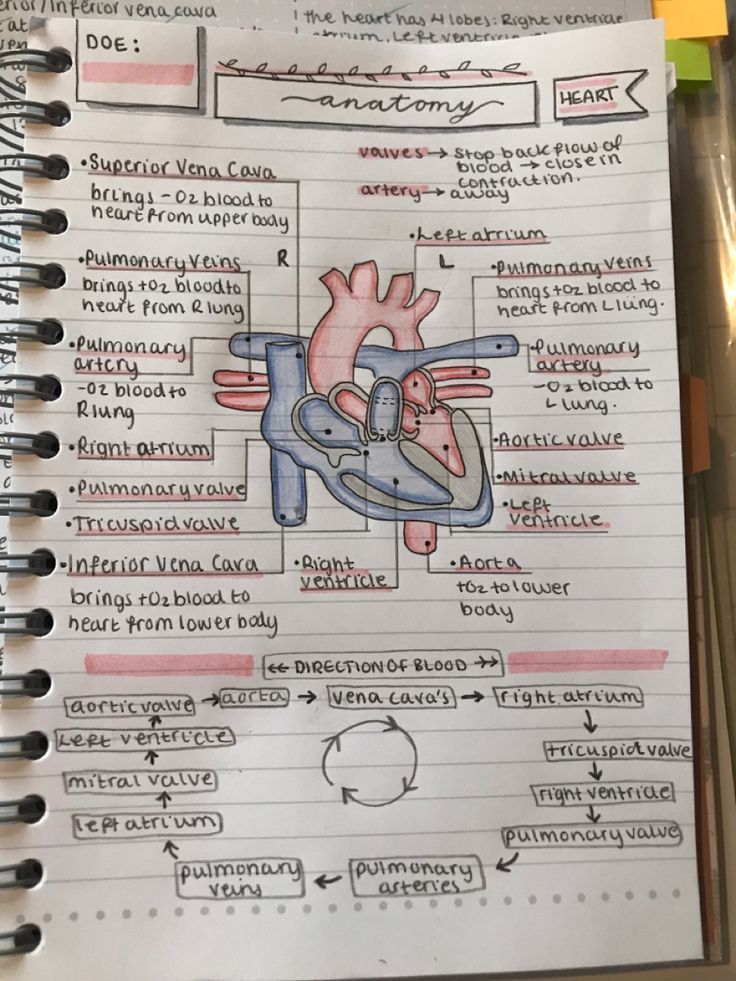 erior/Inferior vena cava
the heart has 4 lobes: Right ventricle
DOE:
anatomy
HEART
valves → stop back flow of
blood → close in
contraction.
artery → away
•Superior Vena Cava
brings -O2 blood to
heart from upper body
•Pulmonary Veins
brings +O2 blood to
heart from R lung
•Pulmonary
artery
-O2 blood to
R lung
•Right atrium
•Pulmonary valve
•Tricuspid valve
•Inferior Vena Cava
brings +O2 blood to
heart from lower body
R
L
•Left atrium
•Pulmonary Veins
brings +O2 blood to
heart from L lung.
•Pulmonary
artery
-O2 blood to
L lung.
•Aortic valve
•Mitral valve
•Left
ventricle
•Right
ventricle
•Aorta
+O2 to lower
body
←← DIRECTION OF BLOOD →→
aortic valve → aorta → vena cava's → right atrium
tricuspid valve
right ventricle
pulmonary valve
pulmonary
arteries
pulmonary
veins
left atrium
mitral valve
left ventricle